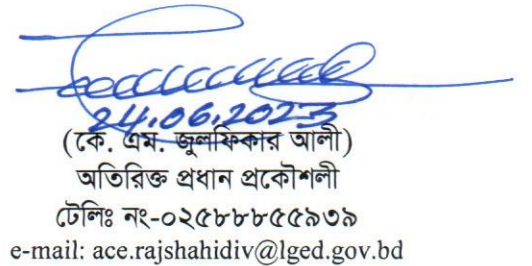 24.06.2023
(কে. এম. জুলফিকার আলী)
অতিরিক্ত প্রধান প্রকৌশলী
টেলিঃ নং-০২৫৮৮৮৫৫৯৩৯
e-mail: ace.rajshahidiv@lged.gov.bd